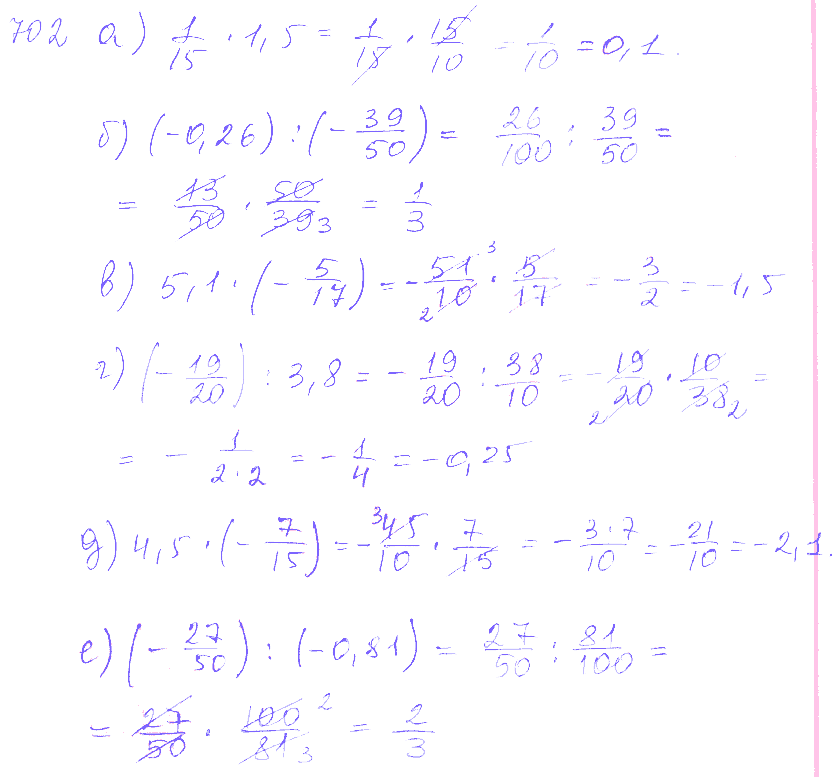 702 а) 1/15 · 1,5 = 1/15 · 15/10 = 1/10 = 0,1.
б) (-0,26) : (- 39/50) = 26/100 : 39/50 =
= 13/50 · 50/39 3 = 1/3
в) 5,1 · (- 5/17) = - 51 3/2 10 · 5/17 = - 3/2 = -1,5
г) (- 19/20) : 3,8 = - 19/20 : 38/10 = - 19/2 20 · 10/38 2 =
= - 1/2·2 = - 1/4 = -0,25
д) 4,5 · (- 7/15) = - 3 45/10 · 7/15 = - 3·7/10 = - 21/10 = -2,1.
е) (- 27/50) : (-0,81) = 27/50 : 81/100 =
= 27/50 · 100 2/81 3 = 2/3